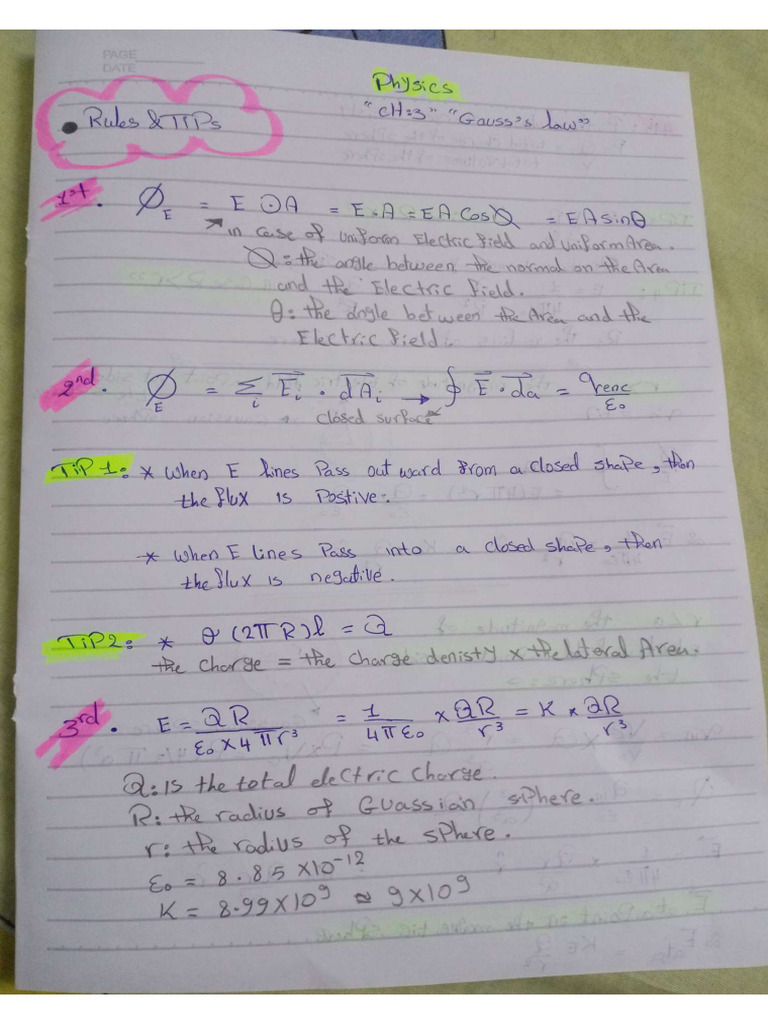 PAGE
DATE
Physics
"CH:3" "Gauss's law"
• Rules & TIPs
1st. Ø_E = E ⊙ A = E . A = EA cos Ø = EA sin θ
in case of Uniform Electric field and Uniform Area.
Ø: the angle between the normal on the Area
and the Electric Field.
θ: the angle between the Area and the
Electric Field.
2nd. Ø_E = Σ_i E⃗_i . dA⃗_i → ∮ E⃗ . da⃗ = q_enc / ε₀
closed surface
TIP 1: * when E lines Pass out ward from a closed shape, then
the flux is Postive.
* when E lines Pass into a closed shape, then
the flux is negative.
TIP 2: * σ (2πR)l = Q
the charge = the charge denisty × the lateral Area.
3rd. E = QR / ε₀ × 4πr³ = 1 / 4πε₀ × QR / r³ = K × QR / r³
Q: is the total electric charge.
R: the radius of Guassian sphere.
r: the radius of the sphere.
ε₀ = 8.85 × 10⁻¹²
K = 8.99 × 10⁹ ≈ 9 × 10⁹